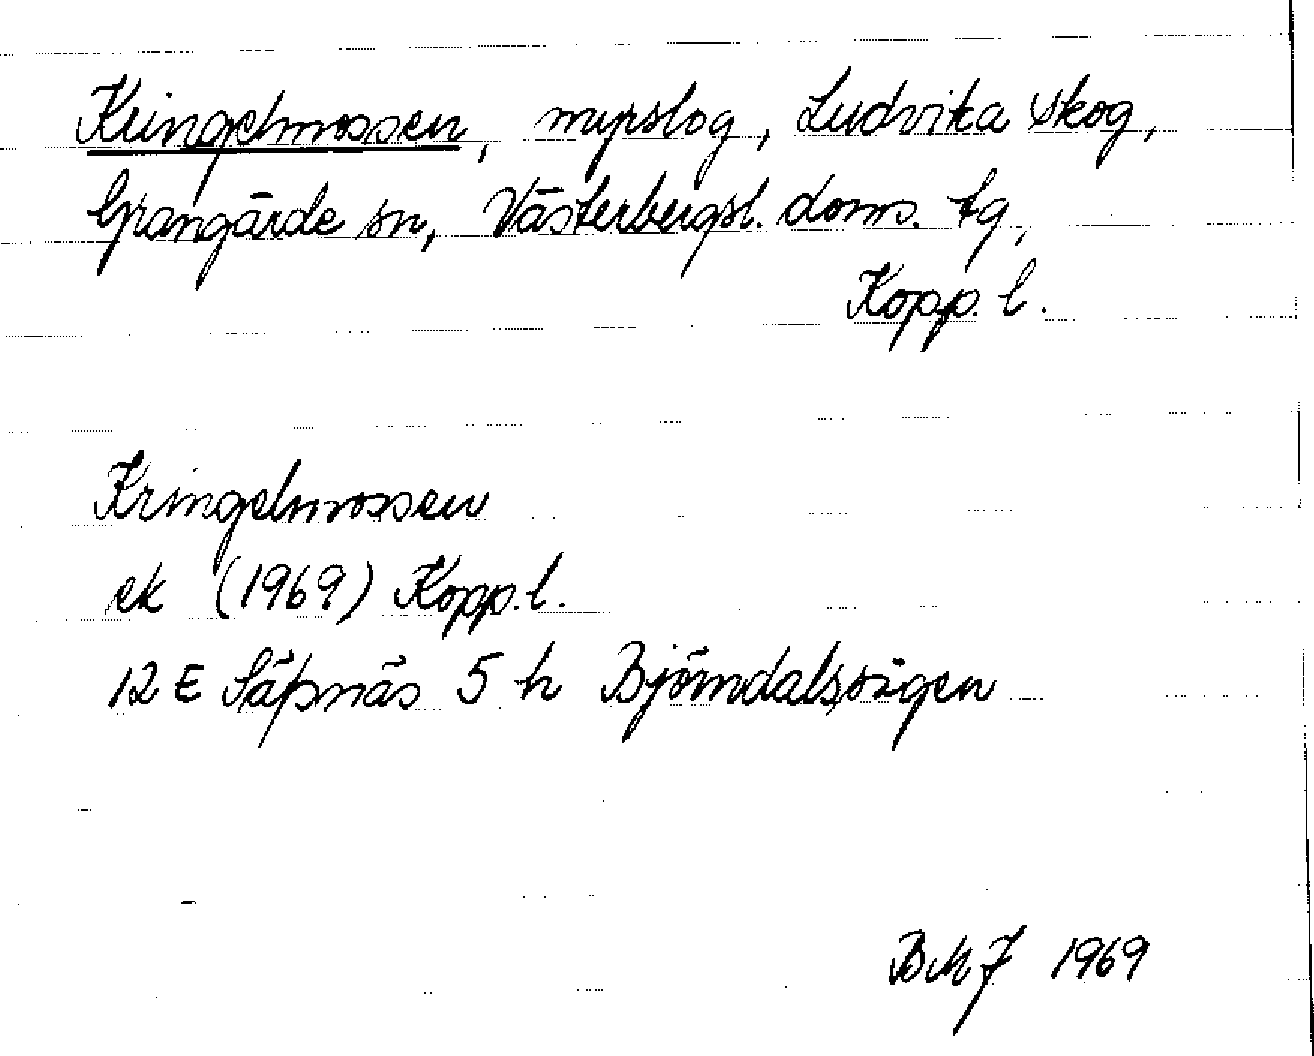 Kringelmossen, myrslog, Ludvika skog,
Grangärde sn, Västerbergsl. doms. tg,
Kopp. l.
Kringelmossen
ek (1969) Kopp. l.
12 E Säfsnäs 5 h Björndalsvägen
BMJ 1969